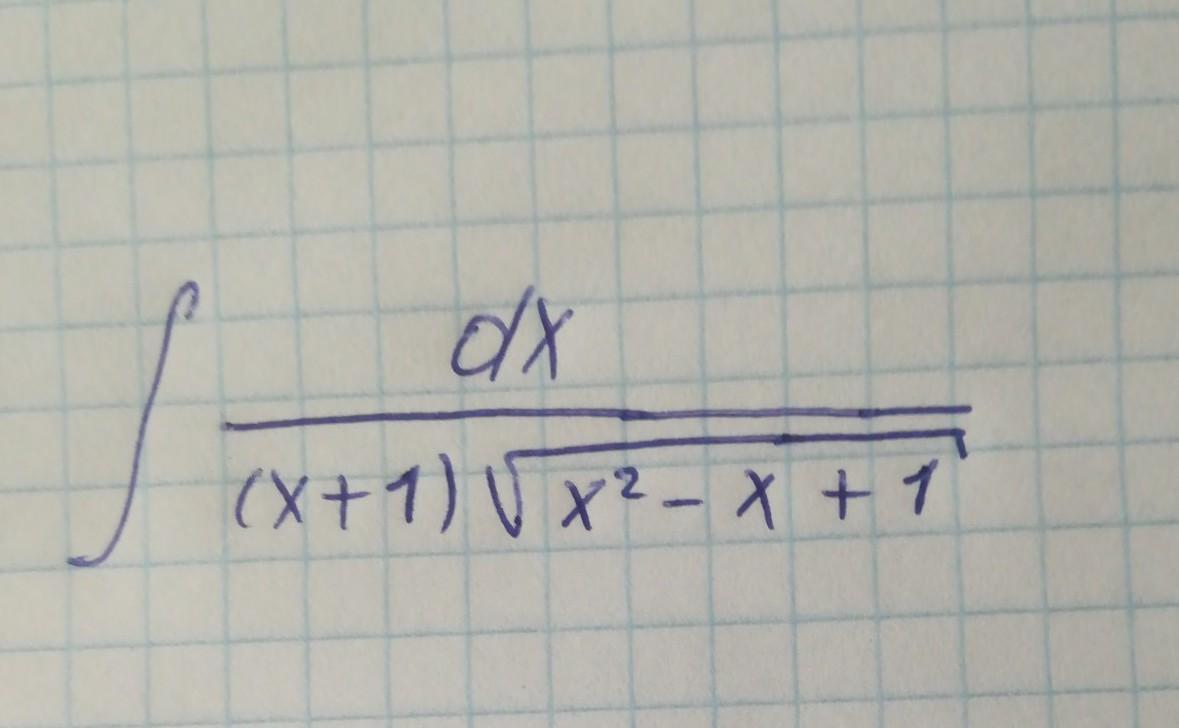 ∫ dx / ((x+1)√(x² - x + 1))